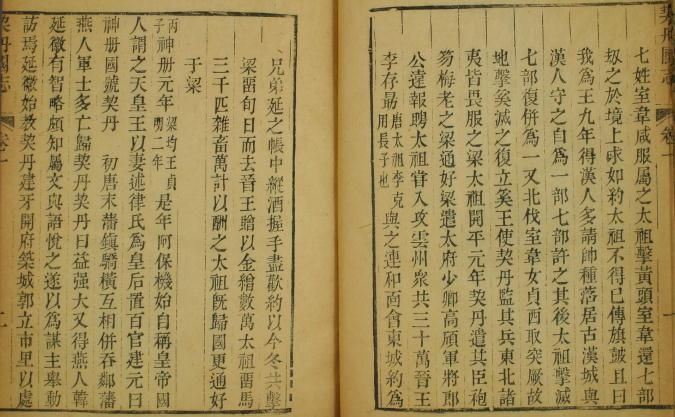 契丹國志 卷一 一
七姓室韋咸服屬之太祖擊黃頭室韋還七部
劫之於境上求如約太祖不得已傳旗鼓且曰
我爲王九年得漢人多請帥種落居古漢城與
漢人守之自爲一部七部許之其後太祖擊滅
七部復併爲一又北伐室韋女貞西取突厥故
地擊奚滅之復立奚王使契丹監其兵東北諸
夷皆畏服之梁太祖開平元年契丹遣其臣袍
笏梅老之梁通好梁遣太府少卿高頎軍將郎
公遠報聘太祖甞入攻雲州衆共三十萬晉王
李存勗 唐太祖李克用長子也 與之連和面會東城約爲
兄弟延之帳中縱酒握手盡歡約以今冬共擊
梁畱旬日而去晉王贈以金繒數萬太祖畱馬
三千匹雜畜萬計以酬之太祖旣歸國更通好
于梁
丙子 神册元年 梁均王貞明二年 是年阿保機始自稱皇帝國
人謂之天皇王以妻述律氏爲皇后置百官建元曰
神册國號契丹 初唐末藩鎭驕橫互相併吞鄰藩
燕人軍士多亡歸契丹契丹日益强大又得燕人韓
延徽有智略頗知屬文與語悅之遂以爲謀主舉動
訪焉延徽始敎契丹建牙開府築城郭立市里以處
契丹國志 卷一 二